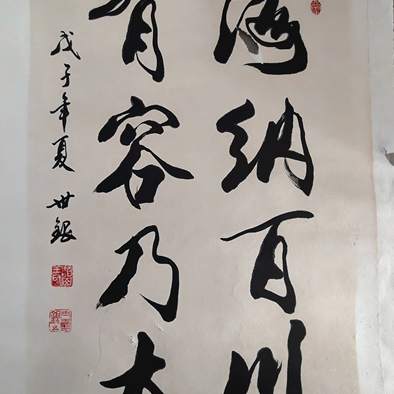 海纳百川
有容乃大
戊子年夏 世银